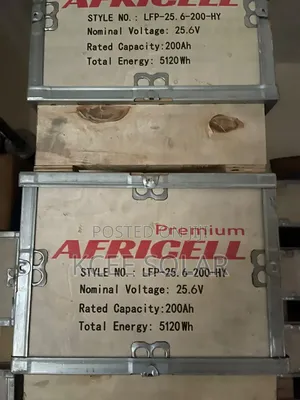 AFRICELL
STYLE NO.: LFP-25.6-200-HY
Nominal Voltage: 25.6V
Rated Capacity:200Ah
Total Energy: 5120Wh
Premium
POSTED
AFRICELL
KCEE SOLAR
STYLE NO.: LFP-25.6-200-HY
Nominal Voltage: 25.6V
Rated Capacity:200Ah
Total Energy: 5120Wh